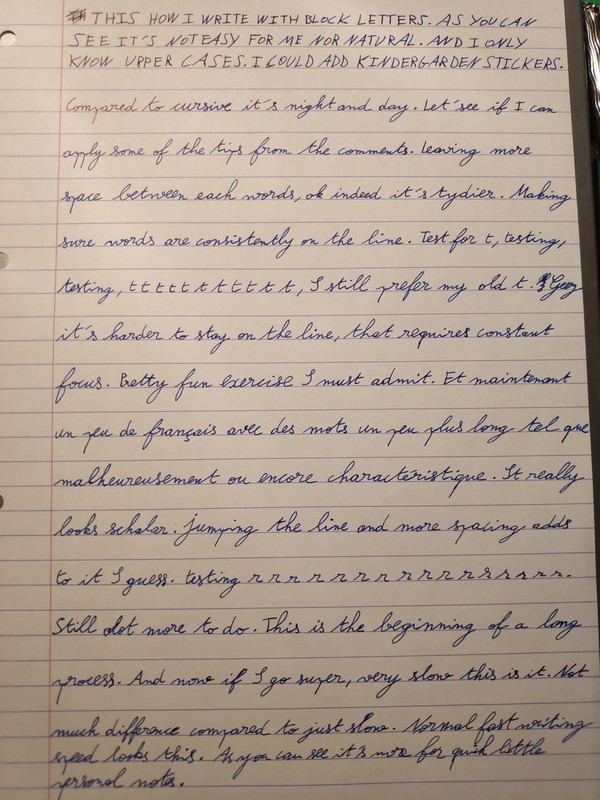 THIS HOW I WRITE WITH BLOCK LETTERS. AS YOU CAN
SEE IT'S NOT EASY FOR ME NOR NATURAL. AND I ONLY
KNOW UPPER CASES. I COULD ADD KINDERGARDEN STICKERS.
Compared to cursive it's night and day. Let'see if I can
apply some of the tips from the comments. Leaving more
space between each words, ok indeed it's tydier. Making
sure words are consistently on the line. Test for t, testing,
testing, t t t t t t t t t t t, I still prefer my old t. Geez
it's harder to stay on the line, that requires constant
focus. Pretty fun exercise I must admit. Et maintenant
un peu de français avec des mots un peu plus long tel que
malheureusement ou encore charactéristique. It really
looks schaler. Jumping the line and more spacing adds
to it I guess. testing r r r r r r r r r r r r r r r r r r.
Still alot more to do. This is the beginning of a long
process. And now if I go super, very slow this is it. Not
much difference compared to just slow. Normal fast writing
speed looks this. As you can see it's more for quick little
personal notes.